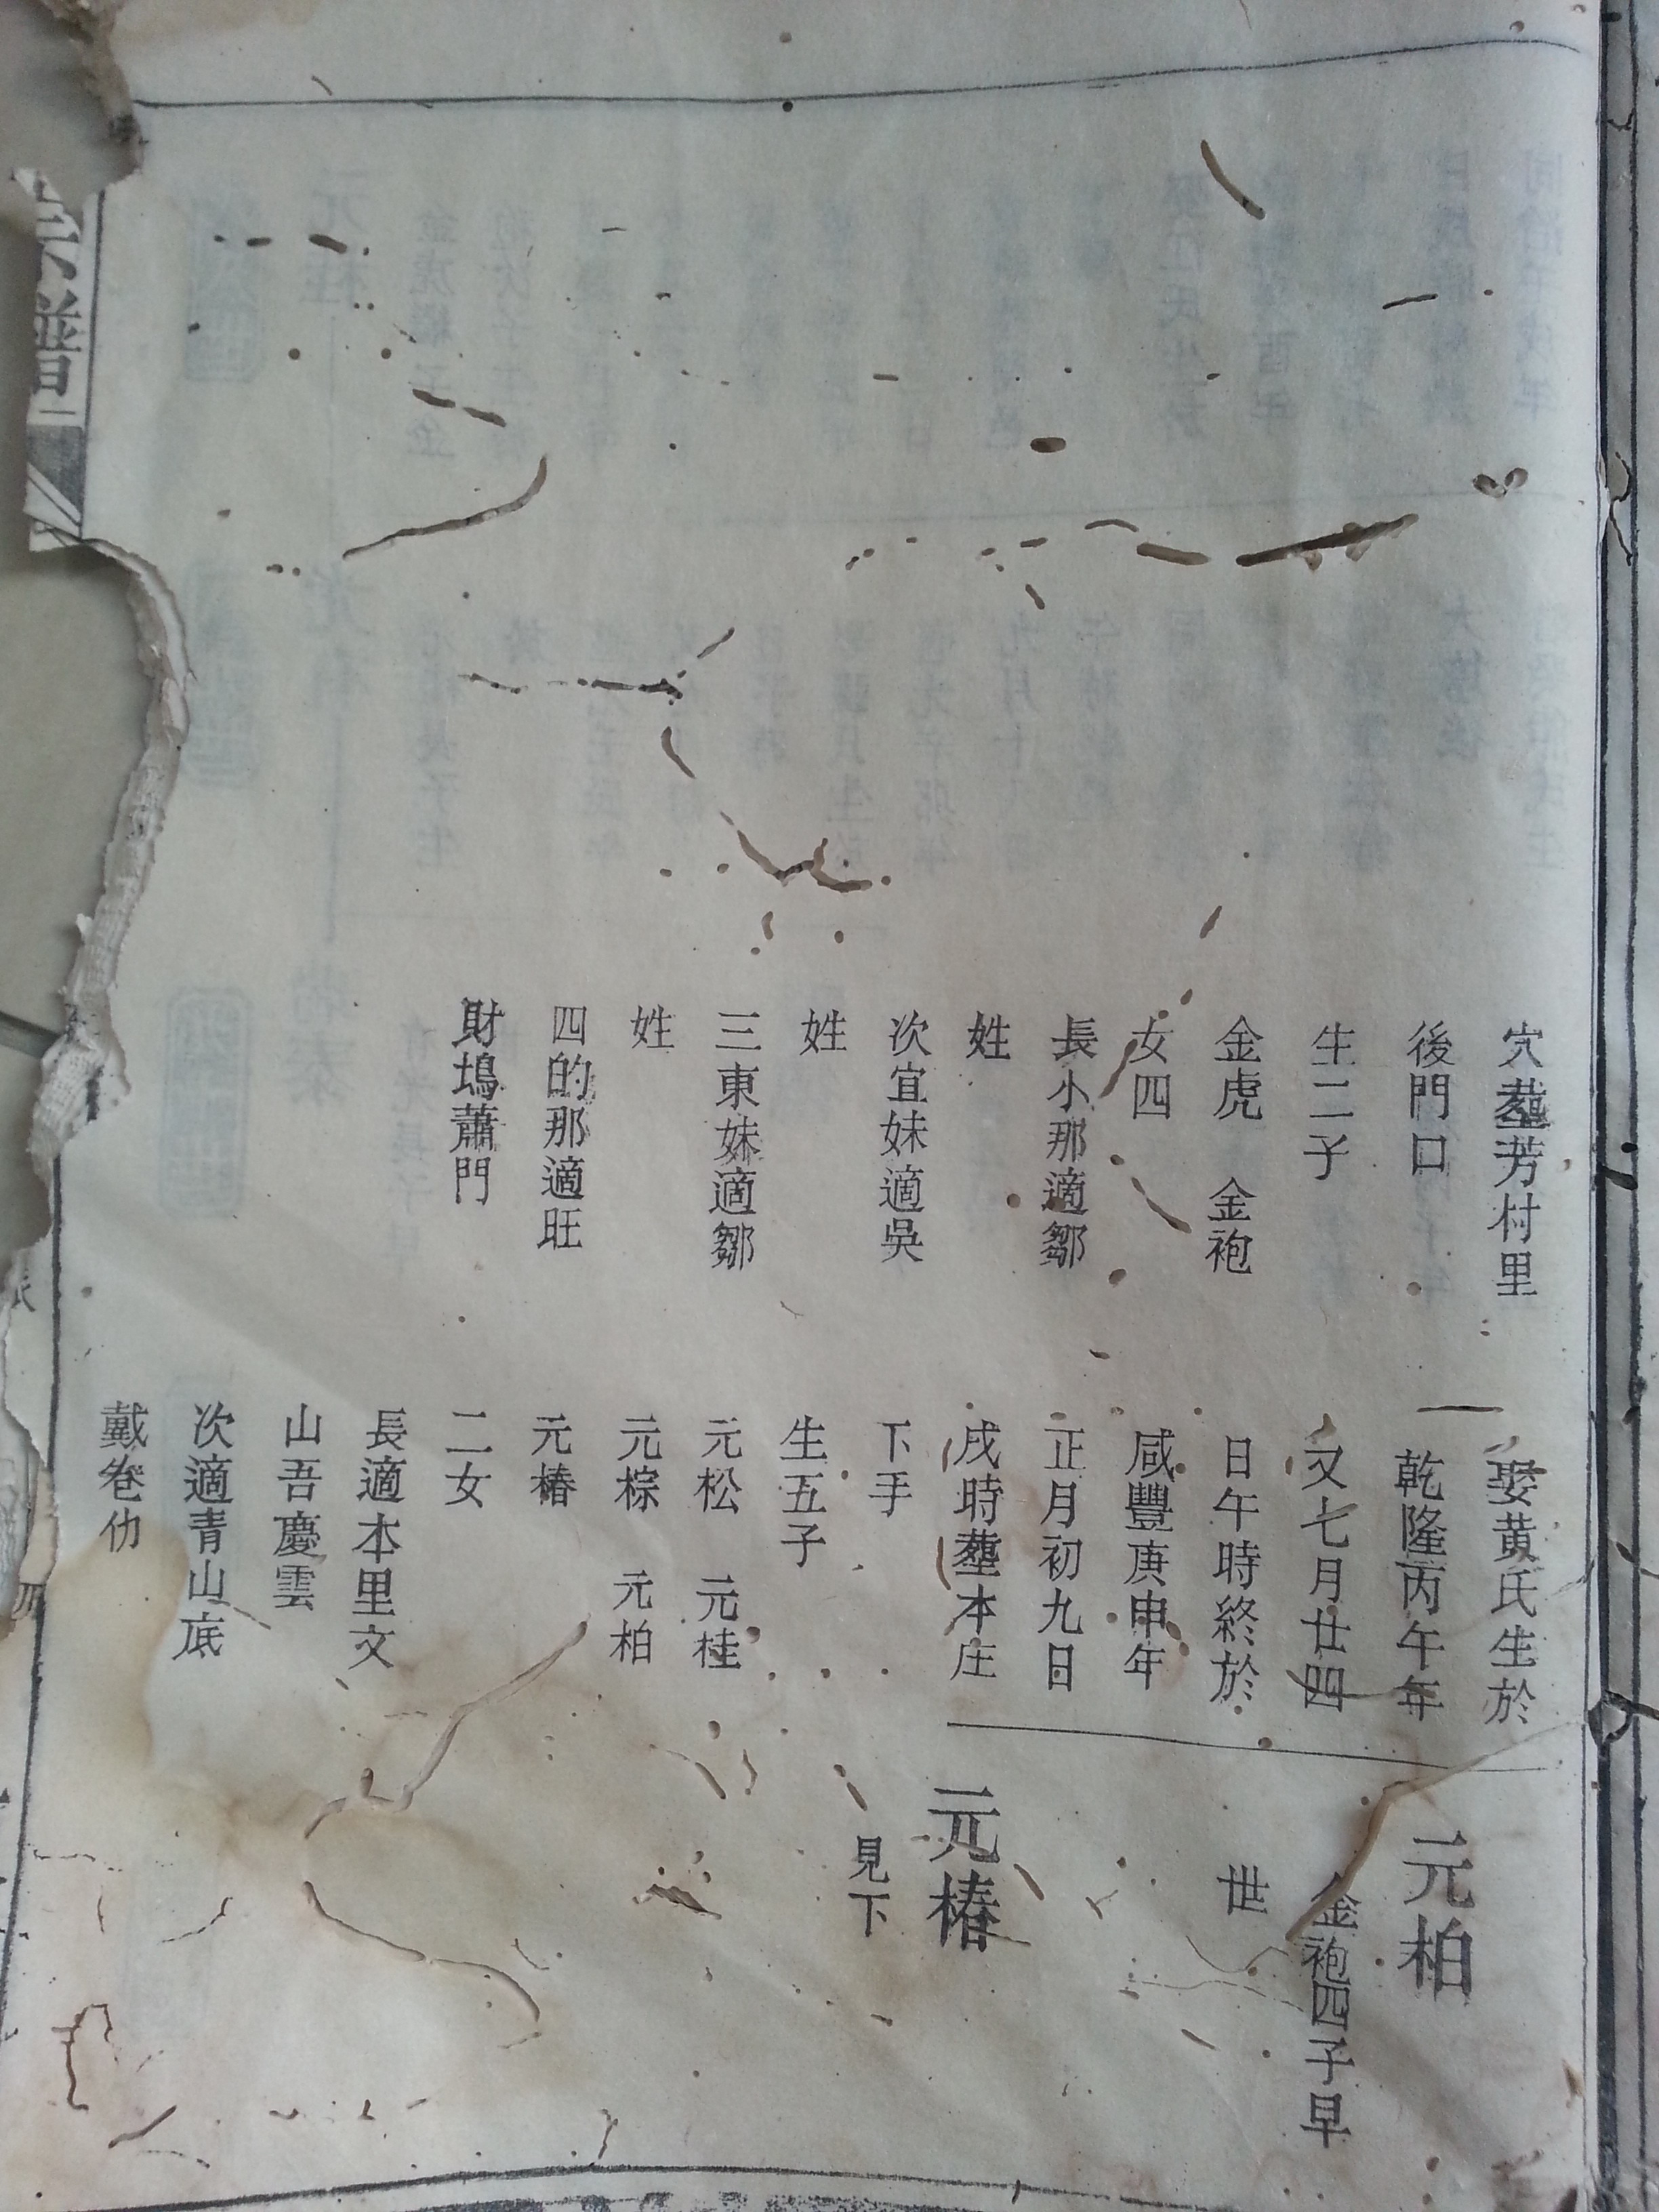 穴塟芳村里
後門口
生二子
金虎　金袍
女四
長小那適鄒
姓
次宜妹適吳
姓
三東妹適鄒
姓
四的那適旺
財塢蕭門
娶黄氏生於
乾隆丙午年
又七月廿四
日午時終於
咸豐庚申年
正月初九日
戌時塟本庄
下手
生五子
元松　元桂
元棕　元柏
元椿
二女
長適本里文
山吾慶雲
次適青山底
戴卷仂
元柏
金袍四子早
世
元椿
見下
宗譜